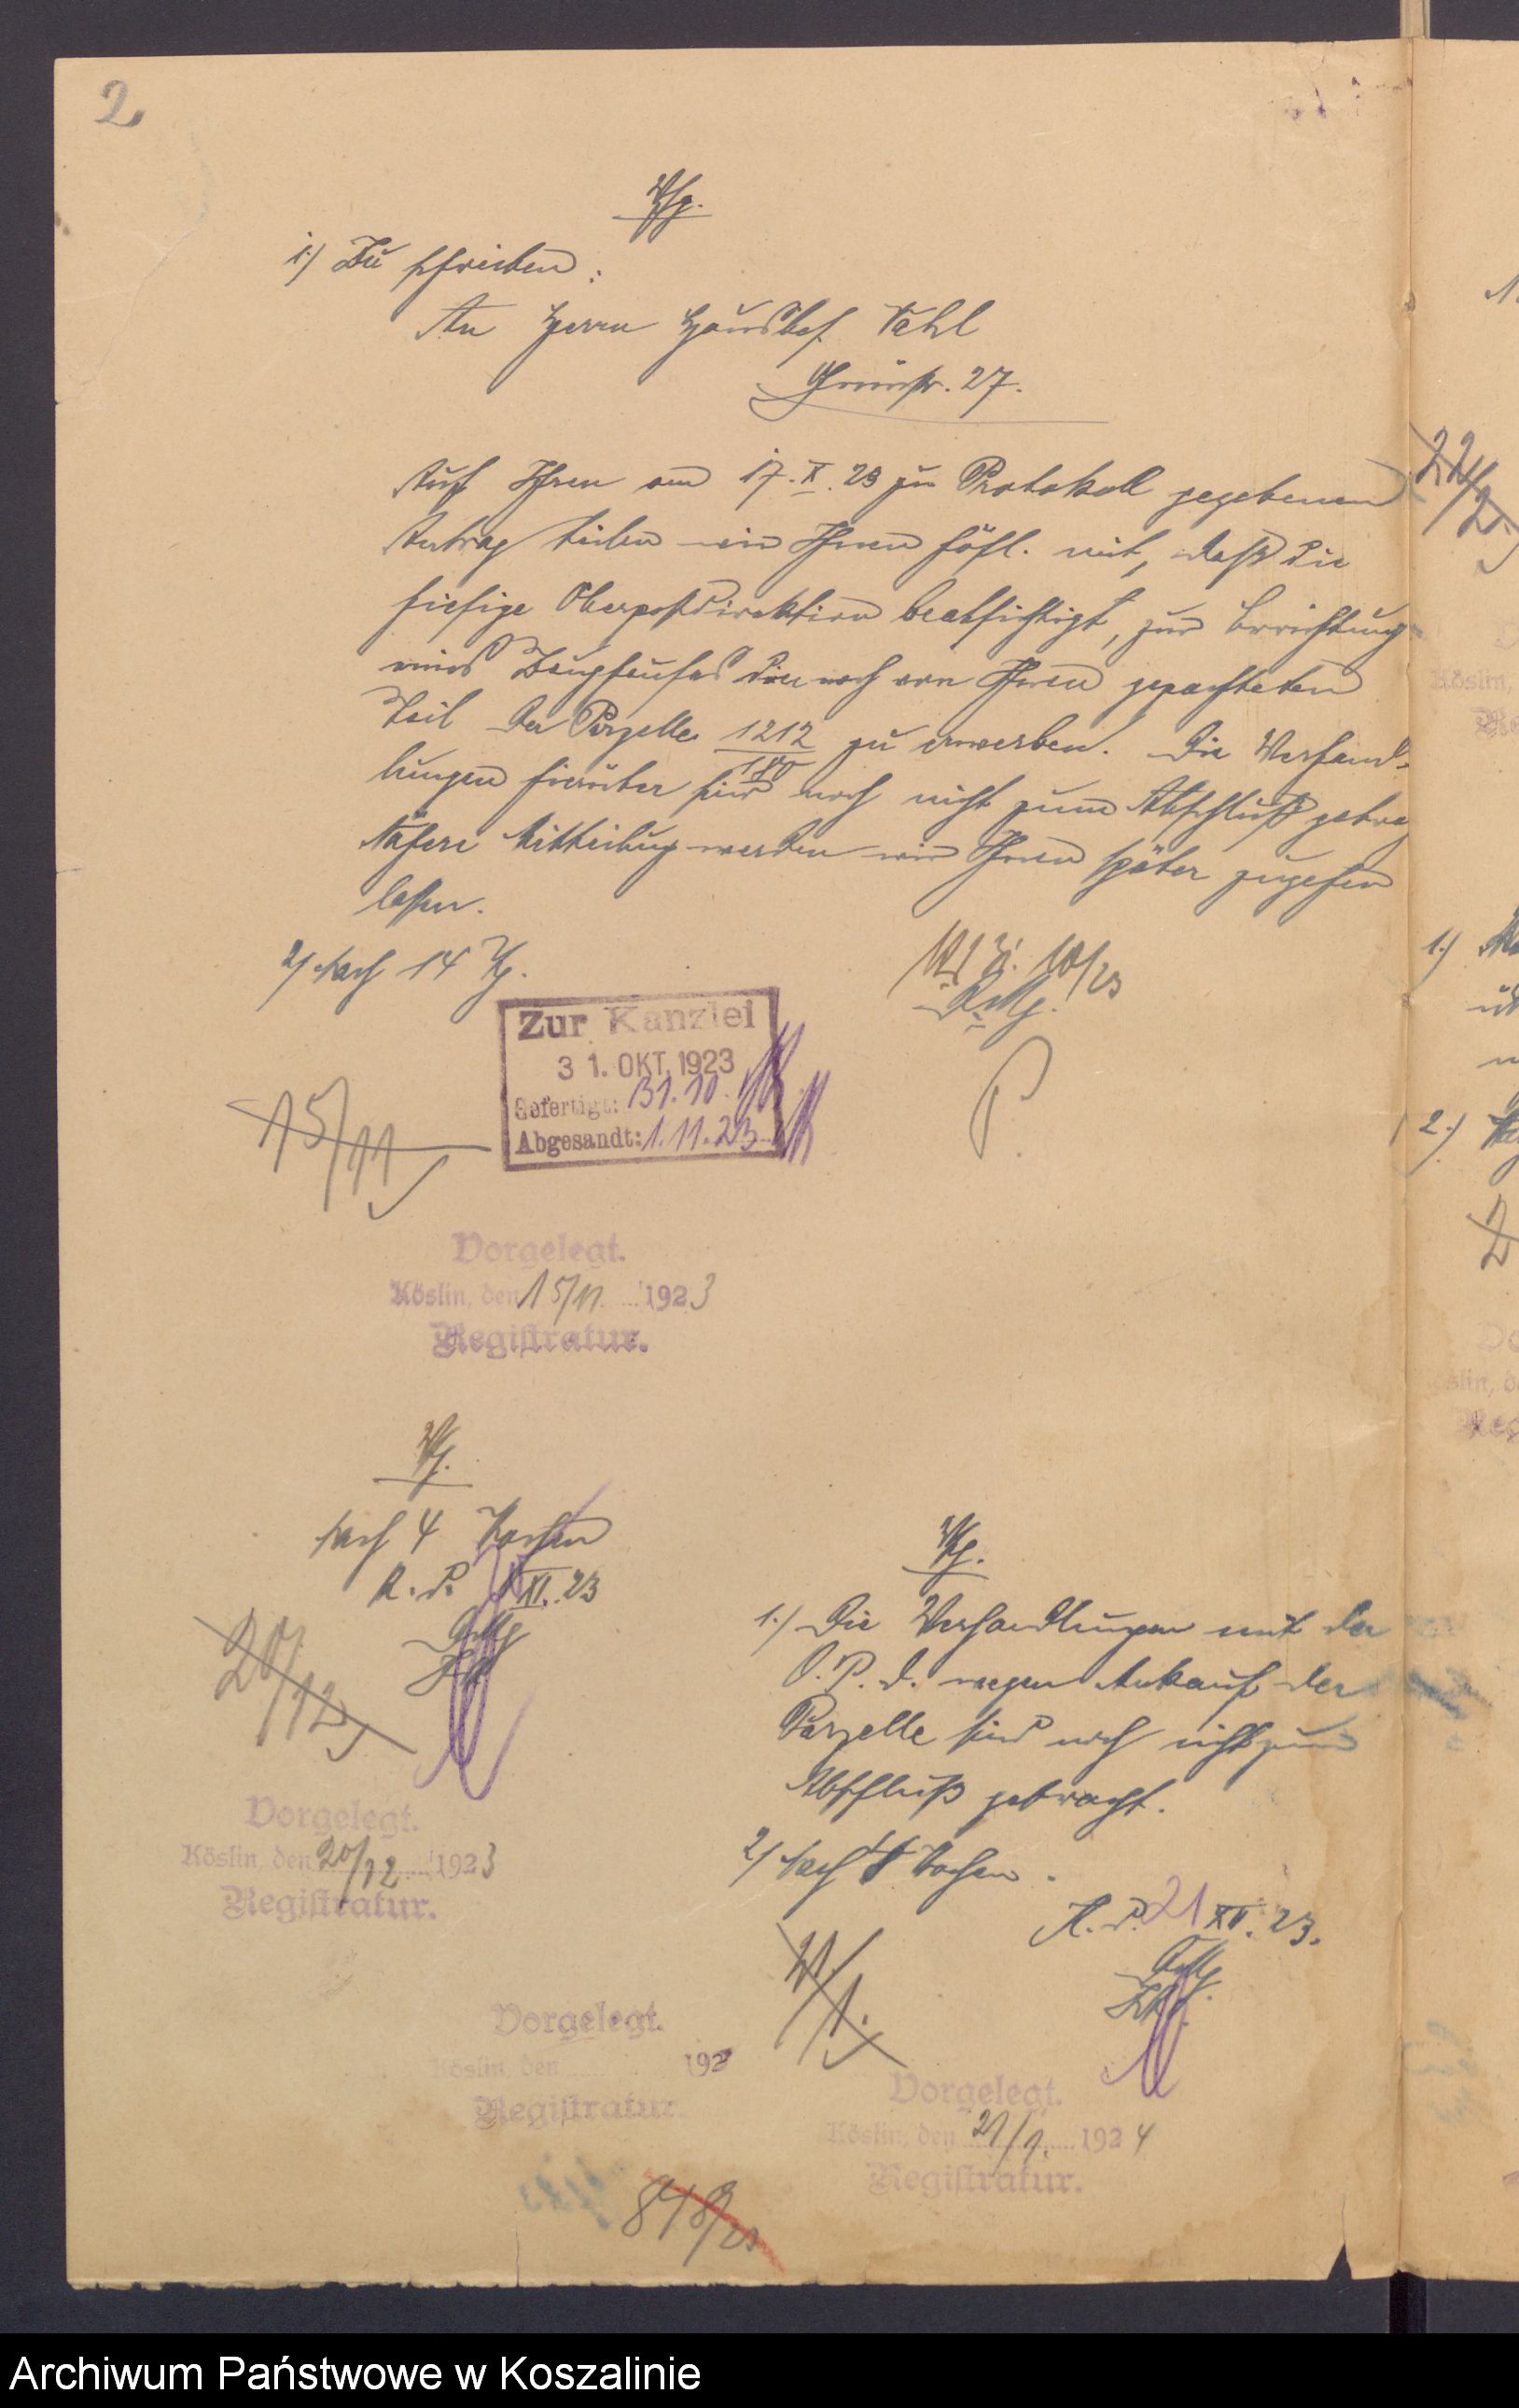 2
Vfg.
1.) Zu schreiben:
An Herrn Hausbes. Vahl
Grünstr. 27.
Auf Ihren am 17. X. 23 zu Protokoll gegebenen
Antrag teilen wir Ihnen höfl. mit, daß die
hiesige Oberpostdirektion beabsichtigt, zur Errichtung
eines Zeughauses den noch von Ihnen gepachteten
Teil der Parzelle 1212/180 zu erwerben. Die Verhand-
lungen hierüber sind noch nicht zum Abschluß gebra
Nähere Mitteilung werden wir Ihnen später zugehen
lassen.
2/ Nach 14 Tg.
10/23
Zur Kanzlei
31. OKT. 1923
Gefertigt: 31.10.
Abgesandt: 1.11.23
15/11
Vorgelegt.
Köslin, den 15/11. 1923
Registratur.
Vfg.
Nach 4 Wochen
K. d. XI. 23
20/12
Vorgelegt.
Köslin, den 20/12 1923
Registratur.
Vfg.
1.) Die Verhandlungen mit der
O. P. D. wegen Ankauf der
Parzelle sind noch nicht zum
Abschluß gebracht.
2/ Nach 4 Wochen.
K. d. 21 XII. 23.
21/1.
Vorgelegt.
Köslin, den 192
Registratur.
Vorgelegt.
Köslin, den 21/1. 1924
Registratur.
848/23
22/2.
1.)
2.)
Archiwum Państwowe w Koszalinie